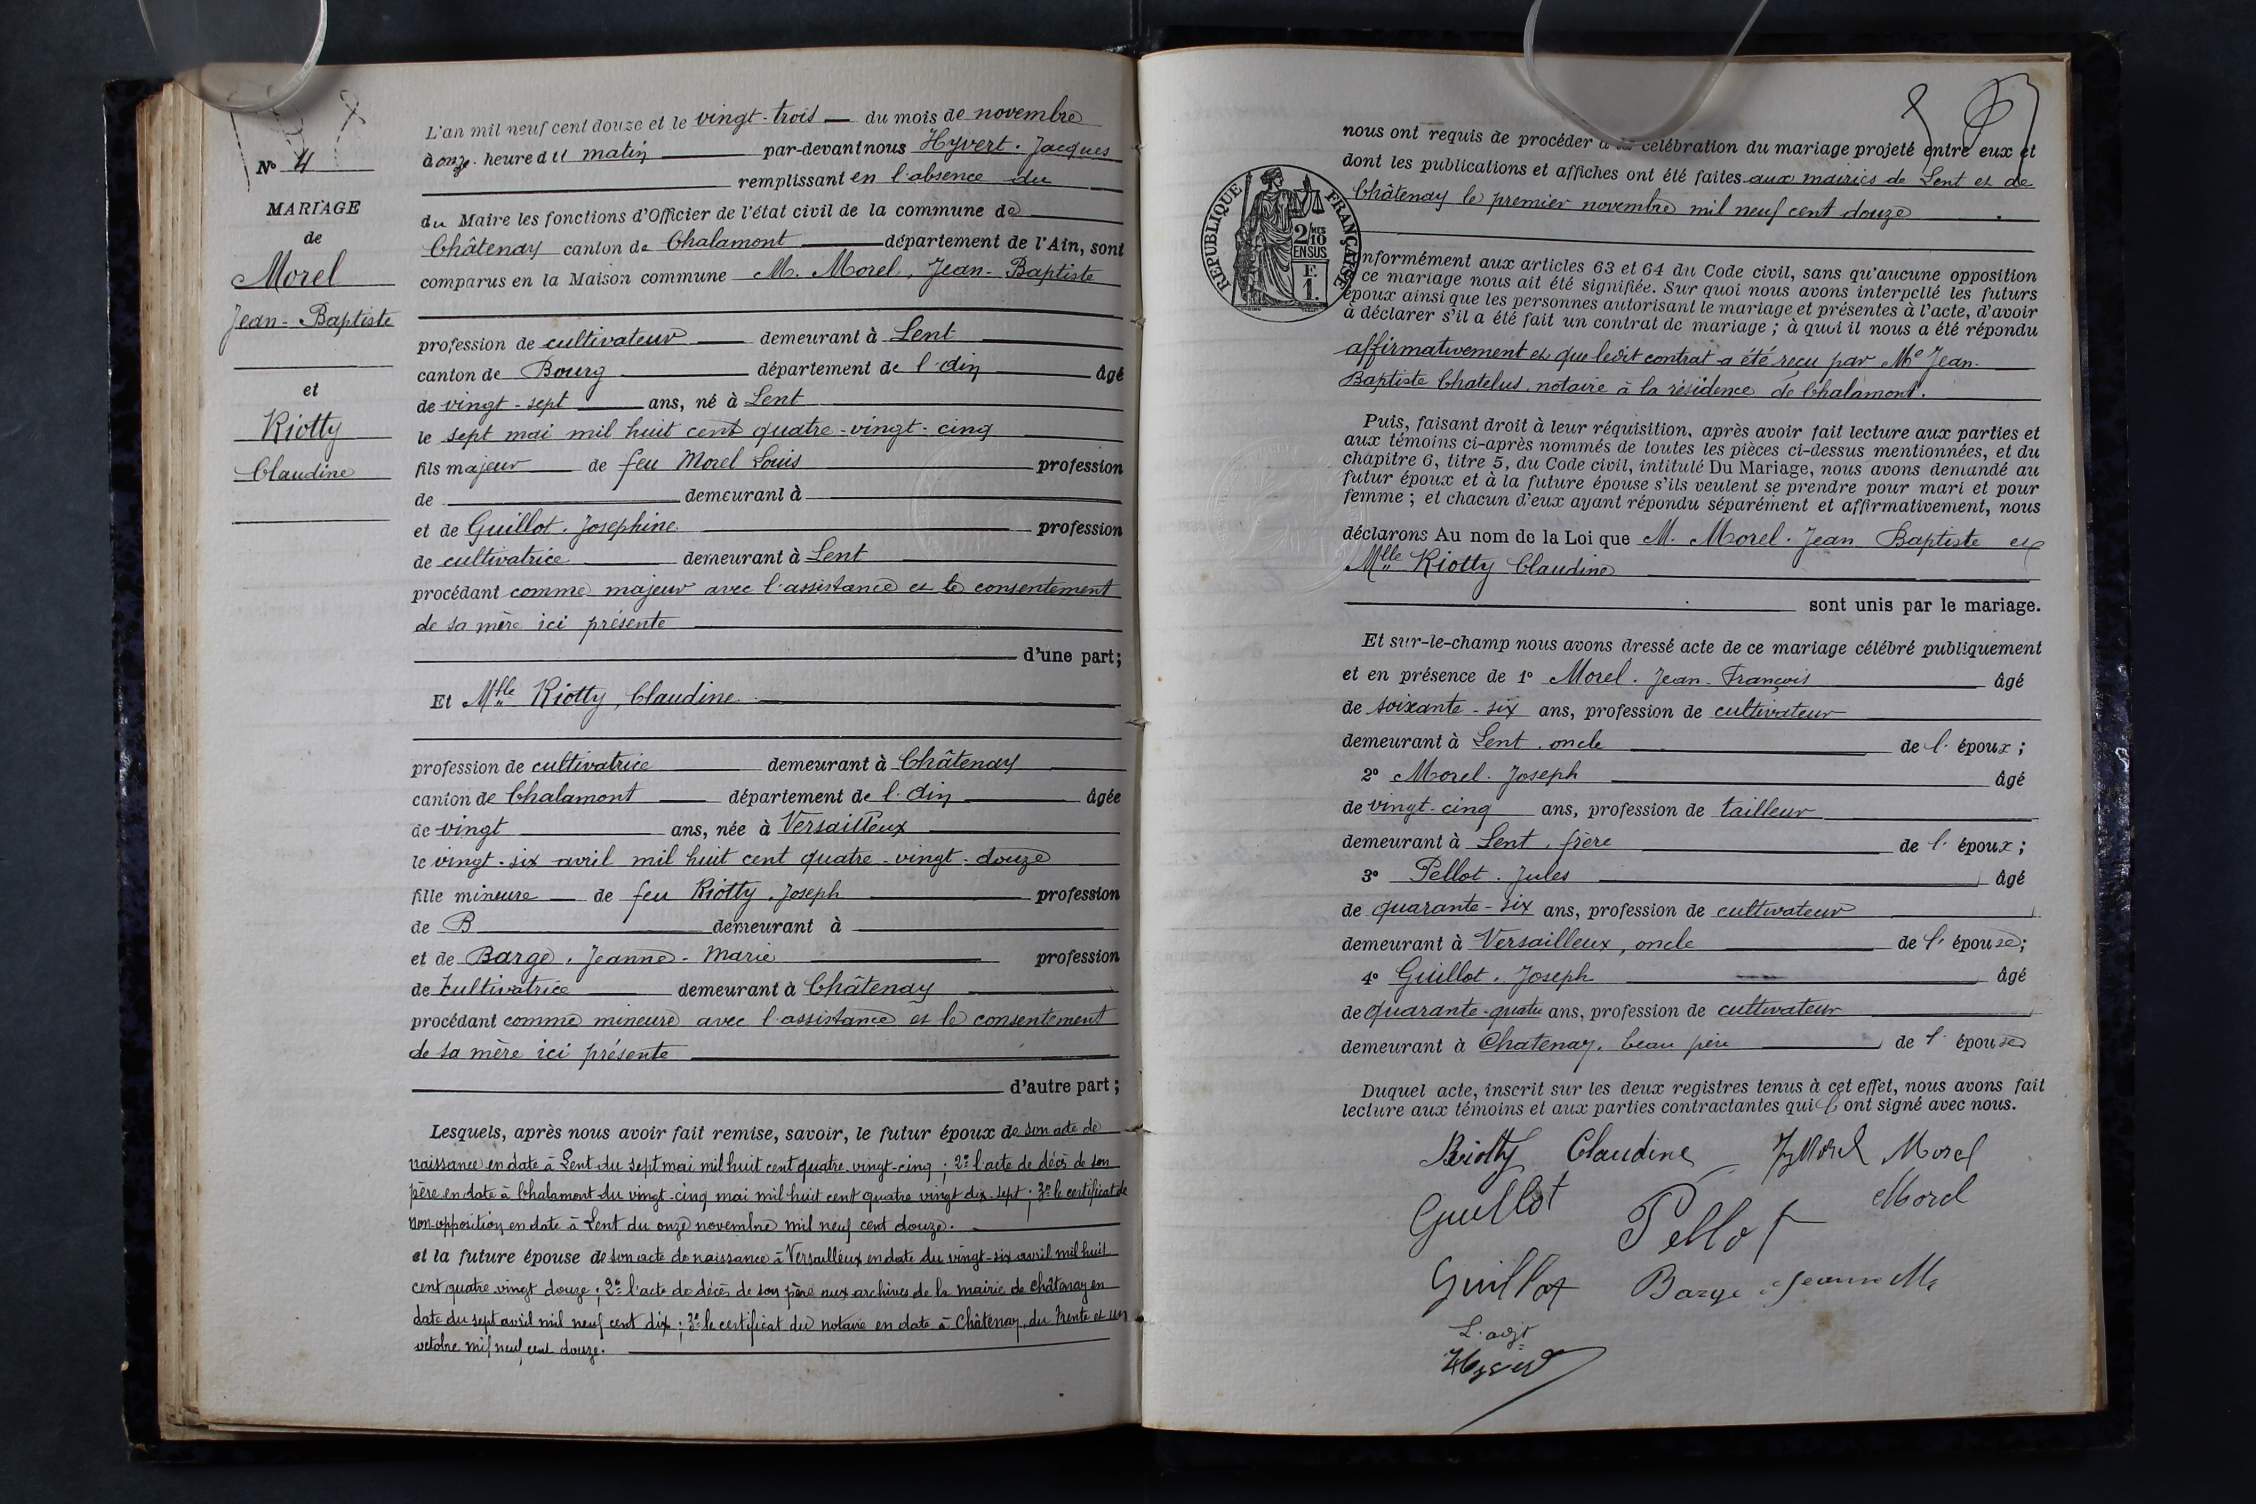 N° 4
MARIAGE
de
Morel
Jean-Baptiste
et
Riotty
Claudine
L'an mil neuf cent douze et le vingt-trois du mois de novembre
à onze heure du matin par-devant nous Hyvert. Jacques
remplissant en l'absence du
du Maire les fonctions d'Officier de l'état civil de la commune de
Châtenay canton de Chalamont département de l'Ain, sont
comparus en la Maison commune M. Morel, Jean-Baptiste
profession de cultivateur demeurant à Lent
canton de Bourg département de l'Ain âgé
de vingt-sept ans, né à Lent
le sept mai mil huit cent quatre-vingt-cinq
fils majeur de feu Morel Louis profession
de demeurant à
et de Guillot. Josephine profession
de cultivatrice demeurant à Lent
procédant comme majeur avec l'assistance et le consentement
de sa mère ici présente
d'une part;
Et Mlle Riotty, Claudine
profession de cultivatrice demeurant à Châtenay
canton de Chalamont département de l'Ain âgée
de vingt ans, née à Versailleux
le vingt-six avril mil huit cent quatre-vingt-douze
fille mineure de feu Riotty. Joseph profession
de demeurant à
et de Barge. Jeanne-Marie profession
de cultivatrice demeurant à Châtenay
procédant comme mineure avec l'assistance et le consentement
de sa mère ici présente
d'autre part;
Lesquels, après nous avoir fait remise, savoir, le futur époux de son acte de
naissance en date à Lent du sept mai mil huit cent quatre-vingt-cinq; 2° l'acte de décès de son
père en date à Chalamont du vingt-cinq mai mil huit cent quatre vingt dix-sept; 3° le certificat de
non-opposition en date à Lent du onze novembre mil neuf cent douze.
et la future épouse de son acte de naissance à Versailleux en date du vingt-six avril mil huit
cent quatre vingt douze; 2° l'acte de décès de son père aux archives de la mairie de Châtenay en
date du sept avril mil neuf cent dix; 3° le certificat du notaire en date à Châtenay, du trente et un
octobre mil neuf cent douze.
nous ont requis de procéder à la célébration du mariage projeté entre eux et
dont les publications et affiches ont été faites aux mairies de Lent et de
Châtenay le premier novembre mil neuf cent douze
RÉPUBLIQUE FRANÇAISE
2/10
EN SUS
F
1.
conformément aux articles 63 et 64 du Code civil, sans qu'aucune opposition
à ce mariage nous ait été signifiée. Sur quoi nous avons interpellé les futurs
époux ainsi que les personnes autorisant le mariage et présentes à l'acte, d'avoir
à déclarer s'il a été fait un contrat de mariage; à quoi il nous a été répondu
affirmativement et que ledit contrat a été reçu par Me Jean-
Baptiste Chatelus, notaire à la résidence de Chalamont.
Puis, faisant droit à leur réquisition, après avoir fait lecture aux parties et
aux témoins ci-après nommés de toutes les pièces ci-dessus mentionnées, et du
chapitre 6, titre 5, du Code civil, intitulé Du Mariage, nous avons demandé au
futur époux et à la future épouse s'ils veulent se prendre pour mari et pour
femme; et chacun d'eux ayant répondu séparément et affirmativement, nous
déclarons Au nom de la Loi que M. Morel. Jean Baptiste et
Mlle Riotty Claudine
sont unis par le mariage.
Et sur-le-champ nous avons dressé acte de ce mariage célébré publiquement
et en présence de 1° Morel. Jean-François âgé
de soixante-six ans, profession de cultivateur
demeurant à Lent. oncle de l'époux;
2° Morel. Joseph âgé
de vingt-cinq ans, profession de tailleur
demeurant à Lent. frère de l'époux;
3° Pellot. Jules âgé
de quarante-six ans, profession de cultivateur
demeurant à Versailleux, oncle de l'épouse;
4° Guillot. Joseph âgé
de quarante-quatre ans, profession de cultivateur
demeurant à Chatenay. beau père de l'épouse
Duquel acte, inscrit sur les deux registres tenus à cet effet, nous avons fait
lecture aux témoins et aux parties contractantes qui ont signé avec nous.
Riotty Claudine Morel Morel
Guillot Pellot Morel
Guillot Barge Jeanne Me
L'adjt
Hyvert